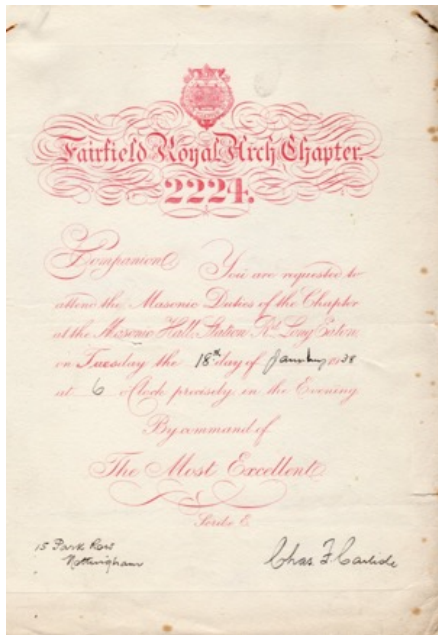 Fairfield Royal Arch Chapter.
2224.
Companion
You are requested to
attend the Masonic Duties of the Chapter
at the Masonic Hall, Station Rd. Long Eaton,
on Tuesday the 18th day of January 1938
at 6 o'Clock precisely in the Evening
By command of
The Most Excellent
Scribe E.
15 Park Row
Nottingham
Chas. F. Carlisle